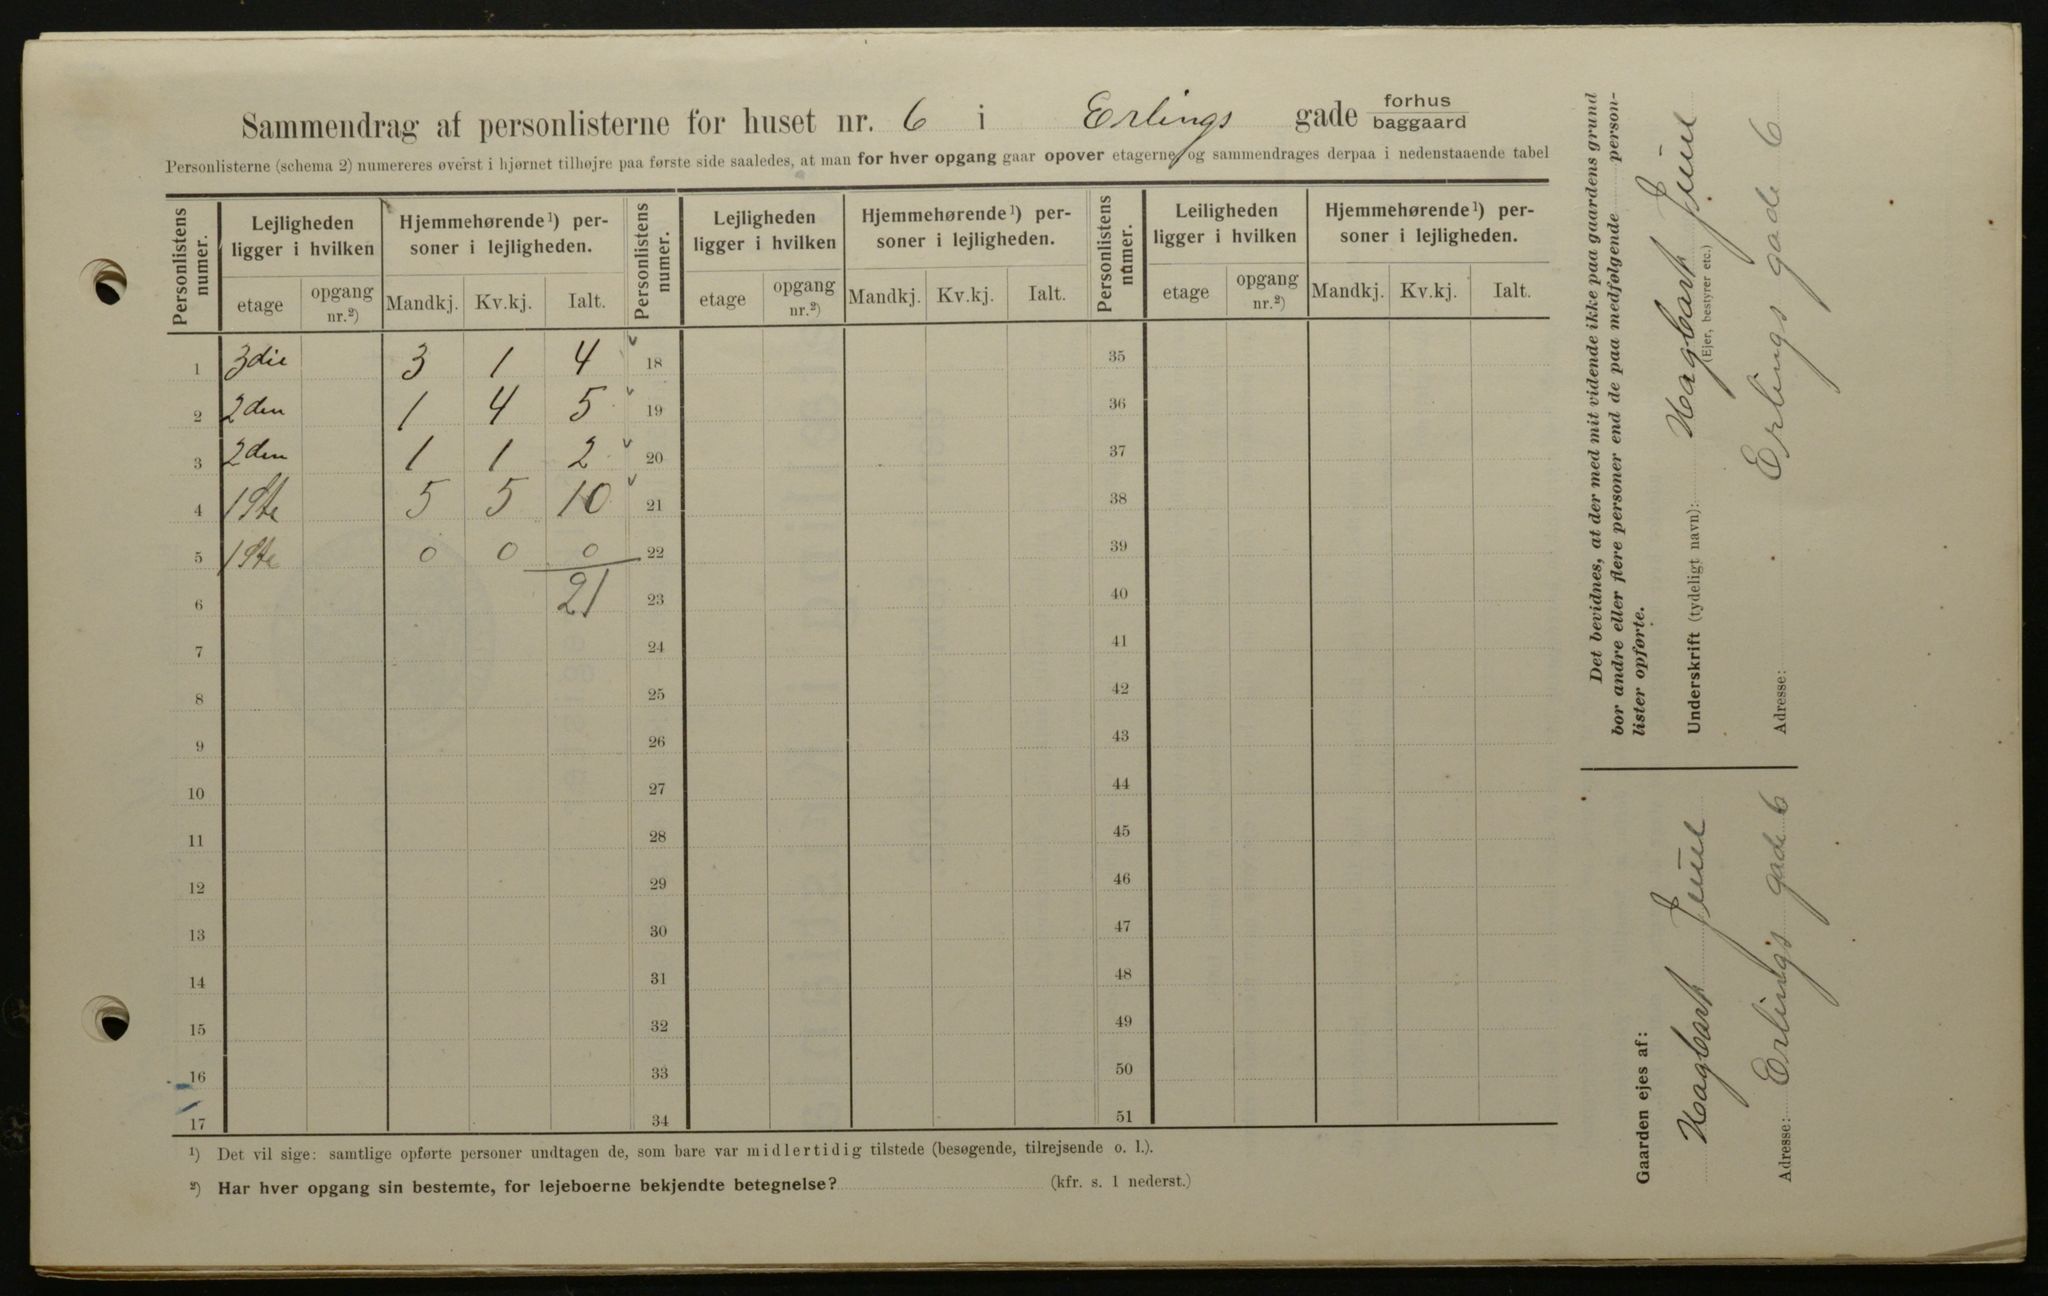 Sammendrag af personlisterne for huset nr. 6 i Erlings gade forhus baggaard
Personlisterne (schema 2) numereres øverst i hjørnet tilhøjre paa første side saaledes, at man for hver opgang gaar opover etagerne, og sammendrages derpaa i nedenstaaende tabel
Personlistens numer. Lejligheden ligger i hvilken Hjemmehørende¹) personer i lejligheden. Personlistens numer. Lejligheden ligger i hvilken Hjemmehørende¹) personer i lejligheden. Personlistens numer. Leiligheden ligger i hvilken Hjemmehørende¹) personer i lejligheden.
etage opgang nr.²) Mandkj. Kv.kj. Ialt. etage opgang nr.²) Mandkj. Kv.kj. Ialt. etage opgang nr.²) Mandkj. Kv.kj. Ialt.
1 3die 3 1 4 18 35
2 2den 1 4 5 19 36
3 2den 1 1 2 20 37
4 1ste 5 5 10 21 38
5 1ste 0 0 0 22 39
6 21 23 40
7 24 41
8 25 42
9 26 43
10 27 44
11 28 45
12 29 46
13 30 47
14 31 48
15 32 49
16 33 50
17 34 51
¹) Det vil sige: samtlige opførte personer undtagen de, som bare var midlertidig tilstede (besøgende, tilrejsende o. l.).
²) Har hver opgang sin bestemte, for lejeboerne bekjendte betegnelse? (kfr. s. 1 nederst.)
Det bevidnes, at der med mit vidende ikke paa gaardens grund
bor andre eller flere personer end de paa medfølgende person-
lister opførte.
Underskrift (tydeligt navn): Hagbarth Juul
(Ejer, bestyrer etc.)
Adresse: Erlings gade 6
Gaarden ejes af:
Hagbarth Juul
Adresse: Erlings gade 6